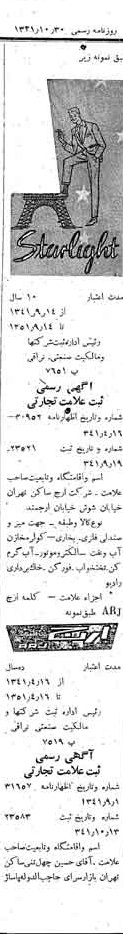 روزنامه رسمی ۳۰ر۱۰ر۱۳۴۱
طبق نمونه زیر
Starlight
مدت اعتبار ۱۰ سال
از ۱۴ر۹ر۱۳۴۱
تا ۱۴ر۹ر۱۳۵۱
رئیس اداره ثبت شرکتها
ومالکیت صنعتی. نراقی
پ ۷۶۵۱
آگهی رسمی
ثبت علامت تجارتی
شماره وتاریخ اظهارنامه ۳۰۹۵۲-
۱۶ر۴ر۱۳۴۱
شماره و تاریخ ثبت ۲۳۵۲۱-
۱۹ر۹ر۱۳۴۱
اسم واقامتگاه وتابعیت صاحب
علامت - شرکت ارج ساکن تهران
خیابان شوش خیابان ارجمند.
نوع کالا وطبقه - جهت میز و
صندلی فلزی. بخاری - کولر مخازن
آب و نفت - الکتروموتور - آب گرم
کن. تختخواب. فور کن. خاک برداری
رادیو
اجزاء علامت - کلمه ارج
ARJ طبق نمونه
مدت اعتبار ده سال
از ۱۶ر۴ر۱۳۴۱
تا ۱۶ر۴ر۱۳۵۱
رئیس اداره ثبت شرکتها و
مالکیت صنعتی نراقی
پ ۷۵۱۹
آگهی رسمی
ثبت علامت تجارتی
شماره وتاریخ اظهارنامه ۳۱۶۵۷
۱ر۹ر۱۳۴۱
شماره وتاریخ ثبت ۲۳۵۸۳
۱۳ر۱۰ر۱۳۴۱
اسم واقامتگاه وتابعیت صاحب
علامت. آقای حسین چهل تنی ساکن
تهران بازار سرای حاجب الدوله پاساژ